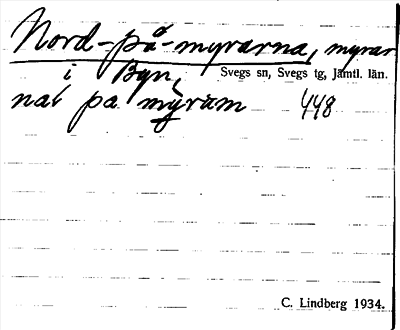 Nord-på-myrarna, myrar
i Byn, Svegs sn, Svegs tg, Jämtl. län.
nał pa mỳram 448
C. Lindberg 1934.